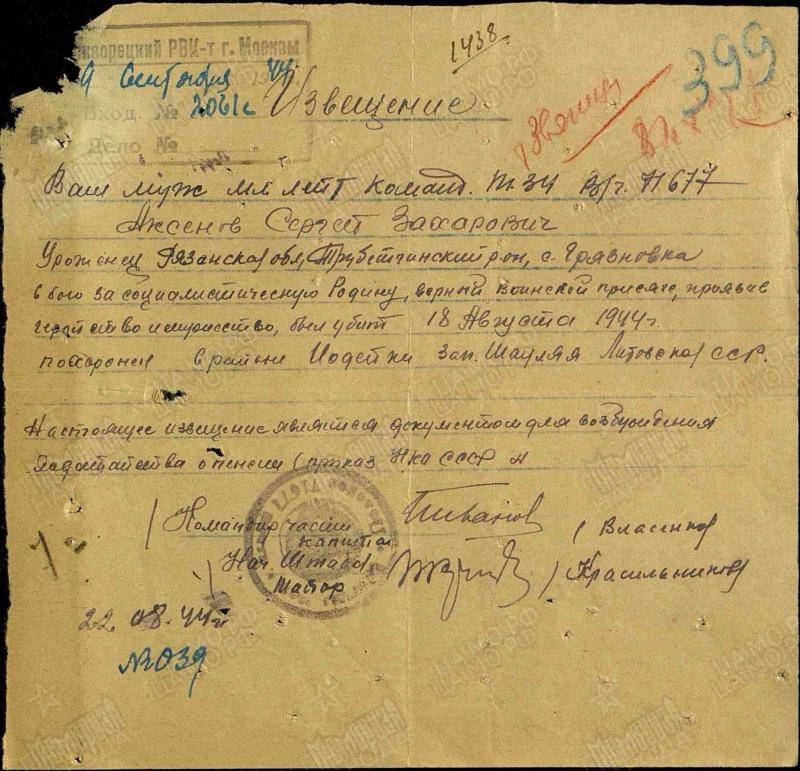 1438.
399
РВК-т г. Москвы
9 Сентября 44
Вход. № 2061с
Дело №
Извещение
Ваш муж мл лейт команд. Т.34 В/ч. П 677
Аксенов Сергей Захарович
Уроженец Рязанская обл, Трубетчинский р-он, с. Грязновка
в бою за социалистическую Родину, верный воинской присяге, проявив
геройство и мужество, был убит 18 Августа 1944 г.
похоронен в районе зап. Шауляя Литовской ССР.
Настоящее извещение является документом для возбуждения
ходатайства о пенсии (приказ НКО СССР №
/ Командир части
капитан / Власенко /
Нач. Штаба
Майор / Красильников /
22. 08. 44 г
№ 039